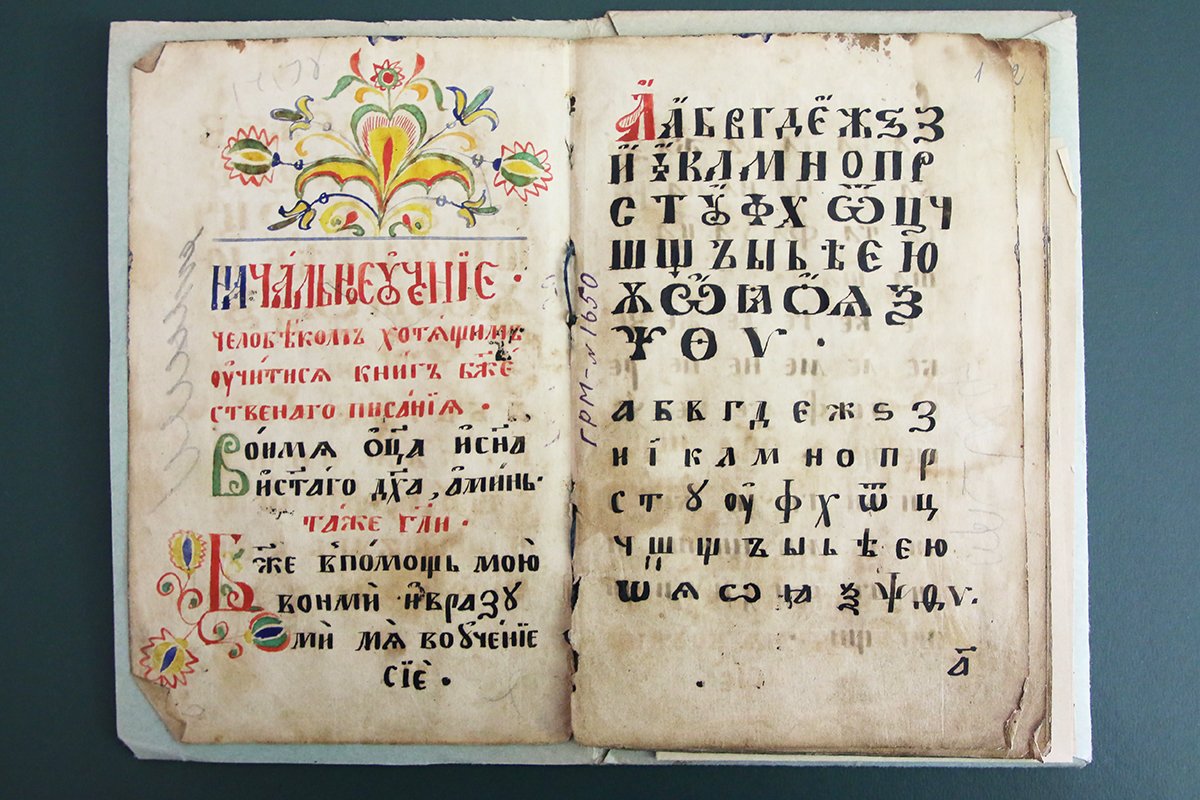 НАЧА́ЛЬНОЕ ᲂУ҆ЧЕ́НЇЕ ·
человѣ́комъ хотѧ́щимъ
ᲂу҆чи́тисѧ книгъ бж҃е
ственаго писа́нїѧ ·
Во и́мѧ ѻ҆ц҃а и҆ сн҃а
и҆ ст҃а́го дх҃а, а҆ми́нь·
та́же гл҃и ·
Бж҃е в по́мощь мою̀
вонмѝ и҆ вразꙋ
мѝ мѧ̀ во ꙋ҆че́нїе
сїѐ ·
А҆ А҆ Б В Г Д Е҆ Ж Ѕ З
И҆ Ї К Л М Н О П Р
С Т Ꙋ҆ Ф Х Ѿ Ц Ч
Ш Щ Ъ Ы Ь Ѣ Є Ю҆
Ѫ Ѽ Ꙗ Ѽ Ѧ Ѯ
Ѱ Ѳ Ѵ ·
а б в г д є ж ѕ з
и ї к л м н о п р
с т ꙋ ᲂу҆ ф х ѿ ц
ч ш щ ъ ы ь ѣ є ю
ѡ ѧ ѡ ꙗ ѯ ѱ ѳ ѵ·
а҃
ГРМ-N 1650
1 2